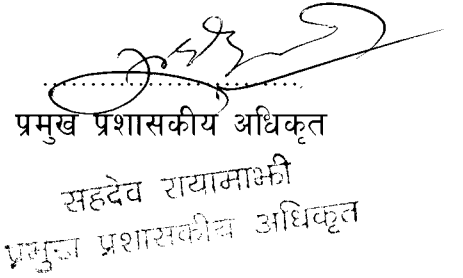 प्रमुख प्रशासकीय अधिकृत
सहदेव रायामाझी
प्रमुख प्रशासकीय अधिकृत